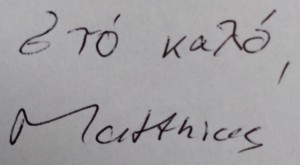 στό καλό,
Matthias